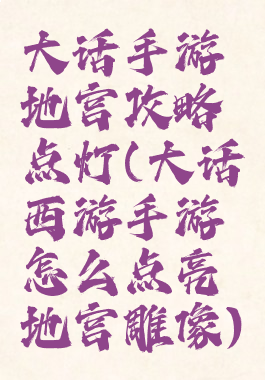 大话手游
地宫攻略
点灯(大话
西游手游
怎么点亮
地宫雕像)